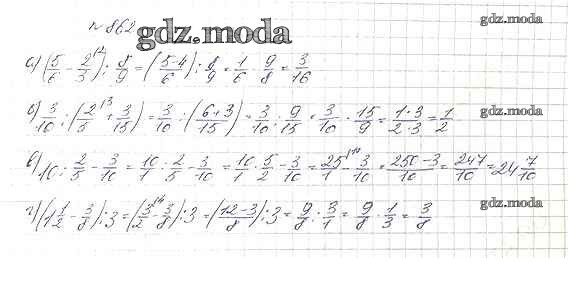 № 862 gdz.moda gdz.moda
а) (5/6 - 2/3^(2) ) : 8/9 = ( (5-4)/6 ) : 8/9 = 1/6 · 9/8 = 3/16
б) 3/10 : ( 2/5^(3) + 3/15 ) = 3/10 : ( (6+3)/15 ) = 3/10 : 9/15 = 3/10 · 15/9 = (1·3)/(2·3) = 1/2 gdz.moda
в) 10 : 2/5 - 3/10 = 10/1 : 2/5 - 3/10 = 10/1 · 5/2 - 3/10 = 25/1^(10) - 3/10 = (250-3)/10 = 247/10 = 24 7/10
г) (1 1/2 - 3/8) : 3 = ( 3/2^(4) - 3/8 ) : 3 = ( (12-3)/8 ) : 3 = 9/8 : 3/1 = 9/8 · 1/3 = 3/8 gdz.moda